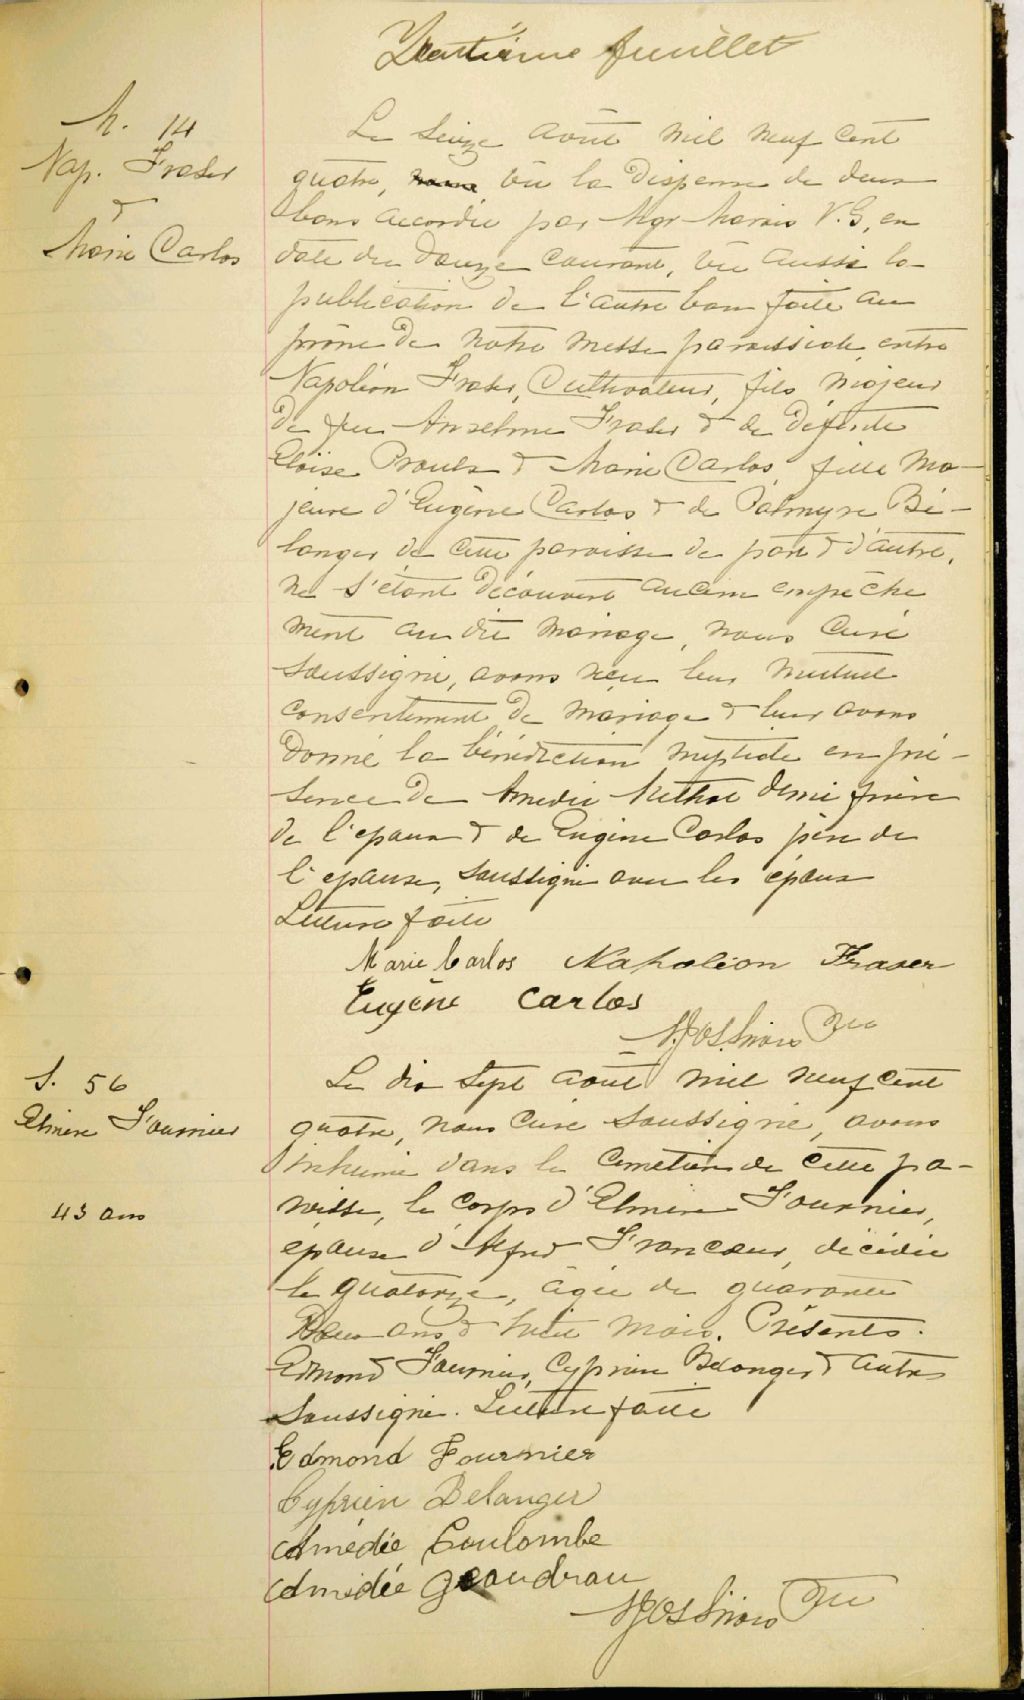 feuillet
M. 14
Nap. Fraser
&
Marie Carlos
Le Seize Août mil neuf cent
quatre, vu la Dispense de deux
bans accordée par Mgr Marois V.G., en
date du douze courant, vu aussi la
publication de l'autre ban faite au
prône de notre messe paroissiale, entre
Napoléon Fraser, Cultivateur, fils majeur
de feu Anselme Fraser & de défunte
Eloïse Proulx & Marie Carlos, fille ma-
jeure d'Eugène Carlos & de Palmyre Bé-
langer, de cette paroisse de part & d'autre,
ne s'étant découvert aucun empêche
ment au dit mariage, nous Curé
Soussigné, avons reçu leur mutuel
consentement de mariage & leur avons
donné la bénédiction nuptiale en pré-
sence de Amédée Methot demi frère
de l'epoux & de Eugène Carlos père de
l'epouse, soussigné avec les époux
Lecture faite
Marie Carlos Napoléon Fraser
Eugène Carlos
Ptre
S. 56
Elmire Fournier
43 ans
Le dix Sept août mil neuf cent
quatre, nous Curé soussigné, avons
inhumé dans le cimetière de cette pa-
roisse, le corps d'Elmire Fournier,
épouse d'Alfred Francoeur, décédée
le quatorze, agée de quarante
Deux ans & huit mois. Présents.
Edmond Fournier, Cyprien Bélanger & autres
Soussignés. Lecture faite
Edmond Fournier
Cyprien Belanger
Amédée Coulombe
Amédée Geaudrau
Ptre